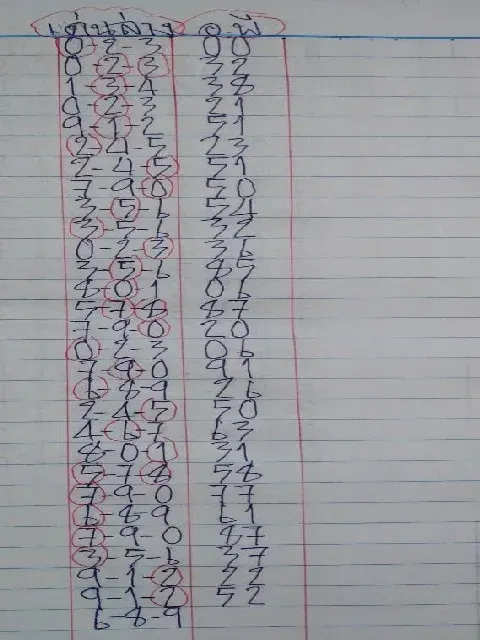 เด่นล่าง อ.พี
0-2-3 00
0-2-3 32
1-3-4 38
0-2-3 21
9-1-2 51
2-4-5 23
2-4-5 51
7-9-0 50
3-5-6 54
3-5-6 32
0-2-3 36
3-5-6 85
8-0-1 06
5-7-8 87
7-9-0 20
0-2-3 06
7-9-0 91
6-8-9 26
2-4-5 50
4-6-7 63
8-0-1 31
5-7-8 58
7-9-0 77
6-8-9 61
7-9-0 87
3-5-6 37
9-1-2 22
9-1-2 52
6-8-9